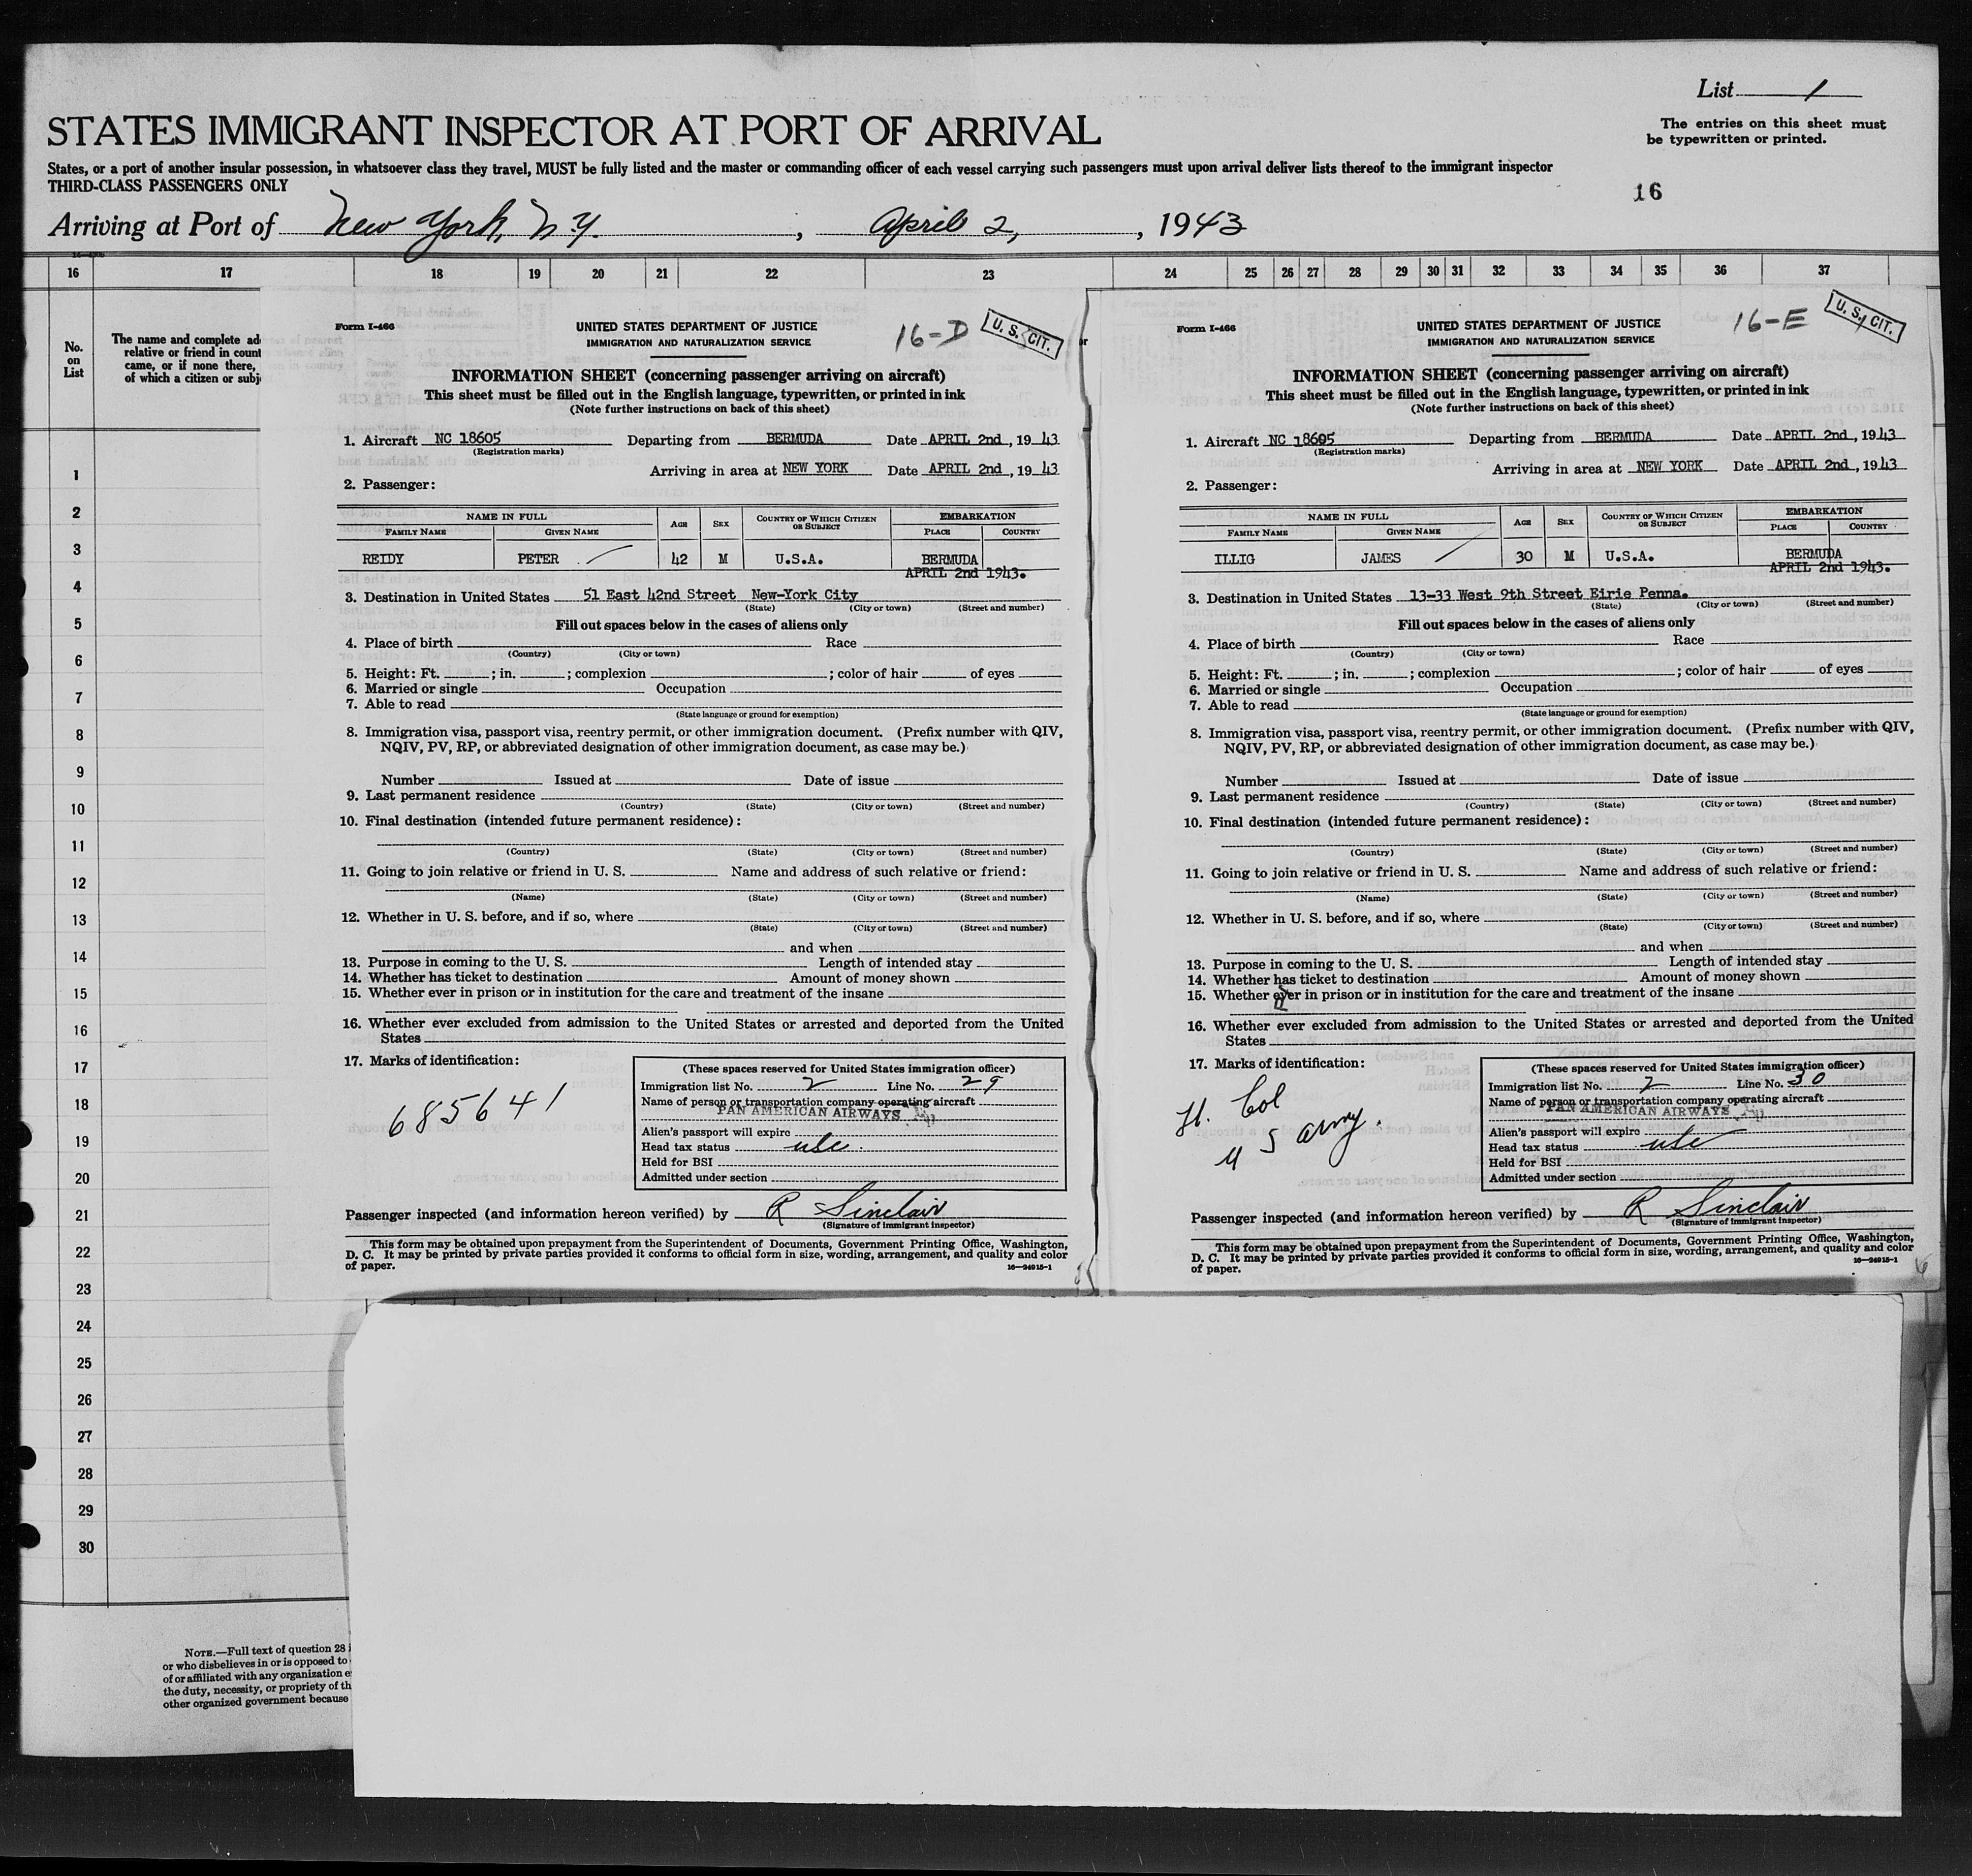 List 1
STATES IMMIGRANT INSPECTOR AT PORT OF ARRIVAL
The entries on this sheet must
be typewritten or printed.
States, or a port of another insular possession, in whatsoever class they travel, MUST be fully listed and the master or commanding officer of each vessel carrying such passengers must upon arrival deliver lists thereof to the immigrant inspector
THIRD-CLASS PASSENGERS ONLY
16
Arriving at Port of New York, N.Y. , April 2, , 1943
16 17 18 19 20 21 22 23 24 25 26 27 28 29 30 31 32 33 34 35 36 37
No.
on
List
The name and complete ad
relative or friend in count
came, or if none there,
of which a citizen or subj
1
2
3
4
5
6
7
8
9
10
11
12
13
14
15
16
17
18
19
20
21
22
23
24
25
26
27
28
29
30
NOTE.—Full text of question 28 i
or who disbelieves in or is opposed to
of or affiliated with any organization e
the duty, necessity, or propriety of th
other organized government because
Form I-466
UNITED STATES DEPARTMENT OF JUSTICE
IMMIGRATION AND NATURALIZATION SERVICE
16-D
U. S. CIT.
INFORMATION SHEET (concerning passenger arriving on aircraft)
This sheet must be filled out in the English language, typewritten, or printed in ink
(Note further instructions on back of this sheet)
1. Aircraft NC 18605 Departing from BERMUDA Date APRIL 2nd, 19 43
(Registration marks)
Arriving in area at NEW YORK Date APRIL 2nd, 19 43
2. Passenger:
NAME IN FULL AGE SEX COUNTRY OF WHICH CITIZEN OR SUBJECT EMBARKATION
FAMILY NAME GIVEN NAME PLACE COUNTRY
REIDY PETER 42 M U.S.A. BERMUDA
APRIL 2nd 1943.
3. Destination in United States 51 East 42nd Street New-York City
(State) (City or town) (Street and number)
Fill out spaces below in the cases of aliens only
4. Place of birth Race
(Country) (City or town)
5. Height: Ft. ; in. ; complexion ; color of hair of eyes
6. Married or single Occupation
7. Able to read
(State language or ground for exemption)
8. Immigration visa, passport visa, reentry permit, or other immigration document. (Prefix number with QIV,
NQIV, PV, RP, or abbreviated designation of other immigration document, as case may be.)
Number Issued at Date of issue
9. Last permanent residence
(Country) (State) (City or town) (Street and number)
10. Final destination (intended future permanent residence):
(Country) (State) (City or town) (Street and number)
11. Going to join relative or friend in U. S. Name and address of such relative or friend:
(Name) (State) (City or town) (Street and number)
12. Whether in U. S. before, and if so, where
(State) (City or town) (Street and number)
and when
13. Purpose in coming to the U. S. Length of intended stay
14. Whether has ticket to destination Amount of money shown
15. Whether ever in prison or in institution for the care and treatment of the insane
16. Whether ever excluded from admission to the United States or arrested and deported from the United
States
17. Marks of identification:
685641
(These spaces reserved for United States immigration officer)
Immigration list No. 2 Line No. 29
Name of person or transportation company operating aircraft
PAN AMERICAN AIRWAYS
Alien's passport will expire
Head tax status usc
Held for BSI
Admitted under section
Passenger inspected (and information hereon verified) by R Sinclair
(Signature of immigrant inspector)
This form may be obtained upon prepayment from the Superintendent of Documents, Government Printing Office, Washington,
D. C. It may be printed by private parties provided it conforms to official form in size, wording, arrangement, and quality and color
of paper.
16—24915-1
Form I-466
UNITED STATES DEPARTMENT OF JUSTICE
IMMIGRATION AND NATURALIZATION SERVICE
16-E
U. S. CIT.
INFORMATION SHEET (concerning passenger arriving on aircraft)
This sheet must be filled out in the English language, typewritten, or printed in ink
(Note further instructions on back of this sheet)
1. Aircraft NC 18605 Departing from BERMUDA Date APRIL 2nd, 1943
(Registration marks)
Arriving in area at NEW YORK Date APRIL 2nd, 1943
2. Passenger:
NAME IN FULL AGE SEX COUNTRY OF WHICH CITIZEN OR SUBJECT EMBARKATION
FAMILY NAME GIVEN NAME PLACE COUNTRY
ILLIG JAMES 30 M U.S.A. BERMUDA
APRIL 2nd 1943.
3. Destination in United States 13-33 West 9th Street Eirie Penna.
(State) (City or town) (Street and number)
Fill out spaces below in the cases of aliens only
4. Place of birth Race
(Country) (City or town)
5. Height: Ft. ; in. ; complexion ; color of hair of eyes
6. Married or single Occupation
7. Able to read
(State language or ground for exemption)
8. Immigration visa, passport visa, reentry permit, or other immigration document. (Prefix number with QIV,
NQIV, PV, RP, or abbreviated designation of other immigration document, as case may be.)
Number Issued at Date of issue
9. Last permanent residence
(Country) (State) (City or town) (Street and number)
10. Final destination (intended future permanent residence):
(Country) (State) (City or town) (Street and number)
11. Going to join relative or friend in U. S. Name and address of such relative or friend:
(Name) (State) (City or town) (Street and number)
12. Whether in U. S. before, and if so, where
(State) (City or town) (Street and number)
and when
13. Purpose in coming to the U. S. Length of intended stay
14. Whether has ticket to destination Amount of money shown
15. Whether ever in prison or in institution for the care and treatment of the insane
16. Whether ever excluded from admission to the United States or arrested and deported from the United
States
17. Marks of identification:
Lt. Col
U S Army.
(These spaces reserved for United States immigration officer)
Immigration list No. 2 Line No. 30
Name of person or transportation company operating aircraft
PAN AMERICAN AIRWAYS
Alien's passport will expire
Head tax status usc
Held for BSI
Admitted under section
Passenger inspected (and information hereon verified) by R Sinclair
(Signature of immigrant inspector)
This form may be obtained upon prepayment from the Superintendent of Documents, Government Printing Office, Washington,
D. C. It may be printed by private parties provided it conforms to official form in size, wording, arrangement, and quality and color
of paper.
16—24915-1